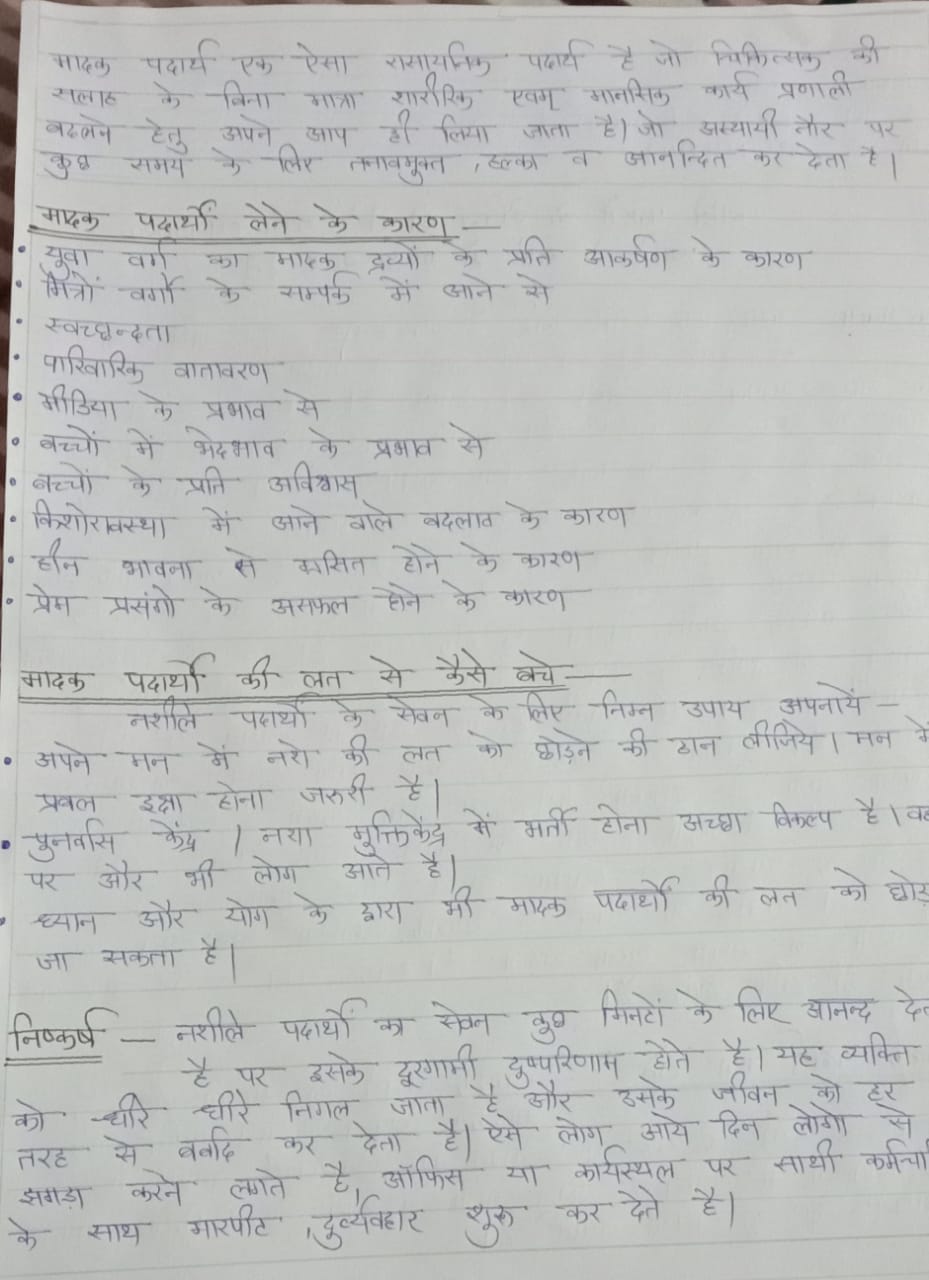 मादक पदार्थ एक ऐसा रासायनिक पदार्थ है जो चिकित्सक की
सलाह के बिना मात्रा शारीरिक एवम् मानसिक कार्य प्रणाली
बदलने हेतु अपने आप ही लिया जाता है। जो अस्थायी तौर पर
कुछ समय के लिए तनावमुक्त, हल्का व आनन्दित कर देता है।
मादक पदार्थों लेने के कारण —
• युवा वर्ग का मादक द्रव्यों के प्रति आकर्षण के कारण
• मित्रों वर्गो के सम्पर्क में आने से
• स्वच्छन्दता
• पारिवारिक वातावरण
• मीडिया के प्रभाव से
• बच्चों में भेदभाव के प्रभाव से
• बच्चों के प्रति अविश्वास
• किशोरावस्था में आने वाले बदलाव के कारण
• हीन भावना से ग्रसित होने के कारण
• प्रेम प्रसंगो के असफल होने के कारण
मादक पदार्थो की लत से कैसे बचे —
नशीले पदार्थो के सेवन के लिए निम्न उपाय अपनायें –
• अपने मन में नशे की लत को छोड़ने की ठान लीजिये। मन में
प्रबल इक्षा होना जरुरी है।
• पुनर्वास केंद्र / नशा मुक्तिकेंद्र में भर्ती होना अच्छा विकल्प है।
पर और भी लोग आते है।
• ध्यान और योग के द्वारा भी मादक पदार्थो की लत को छोड़
जा सकता है।
निष्कर्ष — नशीले पदार्थो का सेवन कुछ मिनटों के लिए आनन्द
है पर इसके दूरगामी दुष्परिणाम होते है। यह व्यक्ति
को धीरे धीरे निगल जाता है और उसके जीवन को हर
तरह से बर्वाद कर देता है। ऐसे लोग आये दिन लोगो से
झगड़ा करने लगते है, ऑफिस या कार्यस्थल पर साथी
के साथ मारपीट, दुर्व्यवहार शुरू कर देते है।